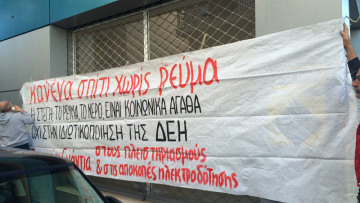 κανένα σπίτι χωρίς ρεύμα
Η ΣΤΕΓΗ, ΤΟ ΡΕΥΜΑ, ΤΟ ΝΕΡΟ, ΕΙΝΑΙ ΚΟΙΝΩΝΙΚΑ ΑΓΑΘΑ
ΟΧΙ ΣΤΗΝ ΙΔΙΩΤΙΚΟΠΟΙΗΣΗ ΤΗΣ ΔΕΗ
στους πλειστηριασμούς
& στις αποκοπές ηλεκτροδότησης